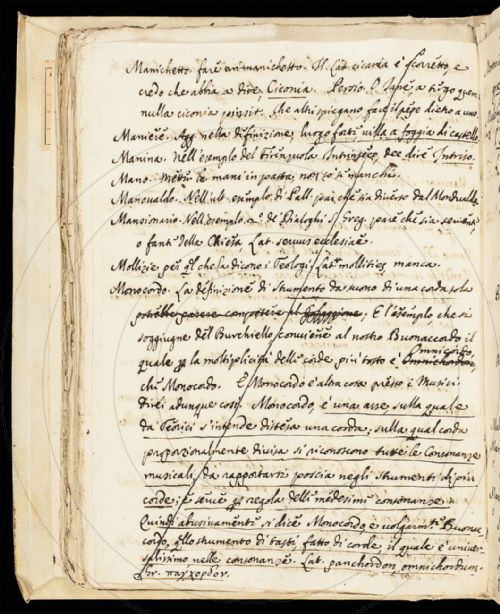 Manichetto. fare un manichetto. Il Lat. cicaria è scorretto, e
credo che abbia a dire Ciconia. Persio. O Jane a tergo quem
nulla ciconia pinsit. Che altri spiegano far il pepe dietro a uno.
Maniere. Agg. nella difinizione, luogo forti villa a foggia di castello
Manina. Nell'esempio del Firenzuola Intrinseco, dee dire Intriso.
Mano. Metter le mani in pasta, non so si manchi.
Manovaldo. Nell'ult. esempio di Pall. par, che sia diverso dal Mondualdo
Mansionario. Nell'esempio de Dialoghi S. Greg. pare che sia servente
o fante della Chiesa Lat. servus ecclesiae.
Mollizie per ql che la dicono i Teologi, Lat. mollities manca.
Monocordo. La difinizione di strumento da suono di una corda sola
potrebbe parere E l'esempio, che si
soggiugne del Burchiello conviene al nostro Buonaccordo il
quale per la moltiplicità delle corde più tosto è Omnicordo,
che Monocordo. E Monocordo è altra cosa presso i Musici
Direi adunque così. Monocordo, è una asse, sulla quale
da Teorici s'intende distesa una corda; sulla qual corda
proporzionalmente divisa si riconoscono tutte le Consonanze
musicali, da rapportarsi poscia negli strumenti di più
corde; e serve per regola delle medesime consonanze.
Quindi abusivamente si dice Monocordo, e volgarmte Buonac
cordo, qllo strumento di tasti fatto di corde, il quale è univer
salissimo nelle consonanze. Lat. panchordon, omnichordum.
Gr. παγχορδον.